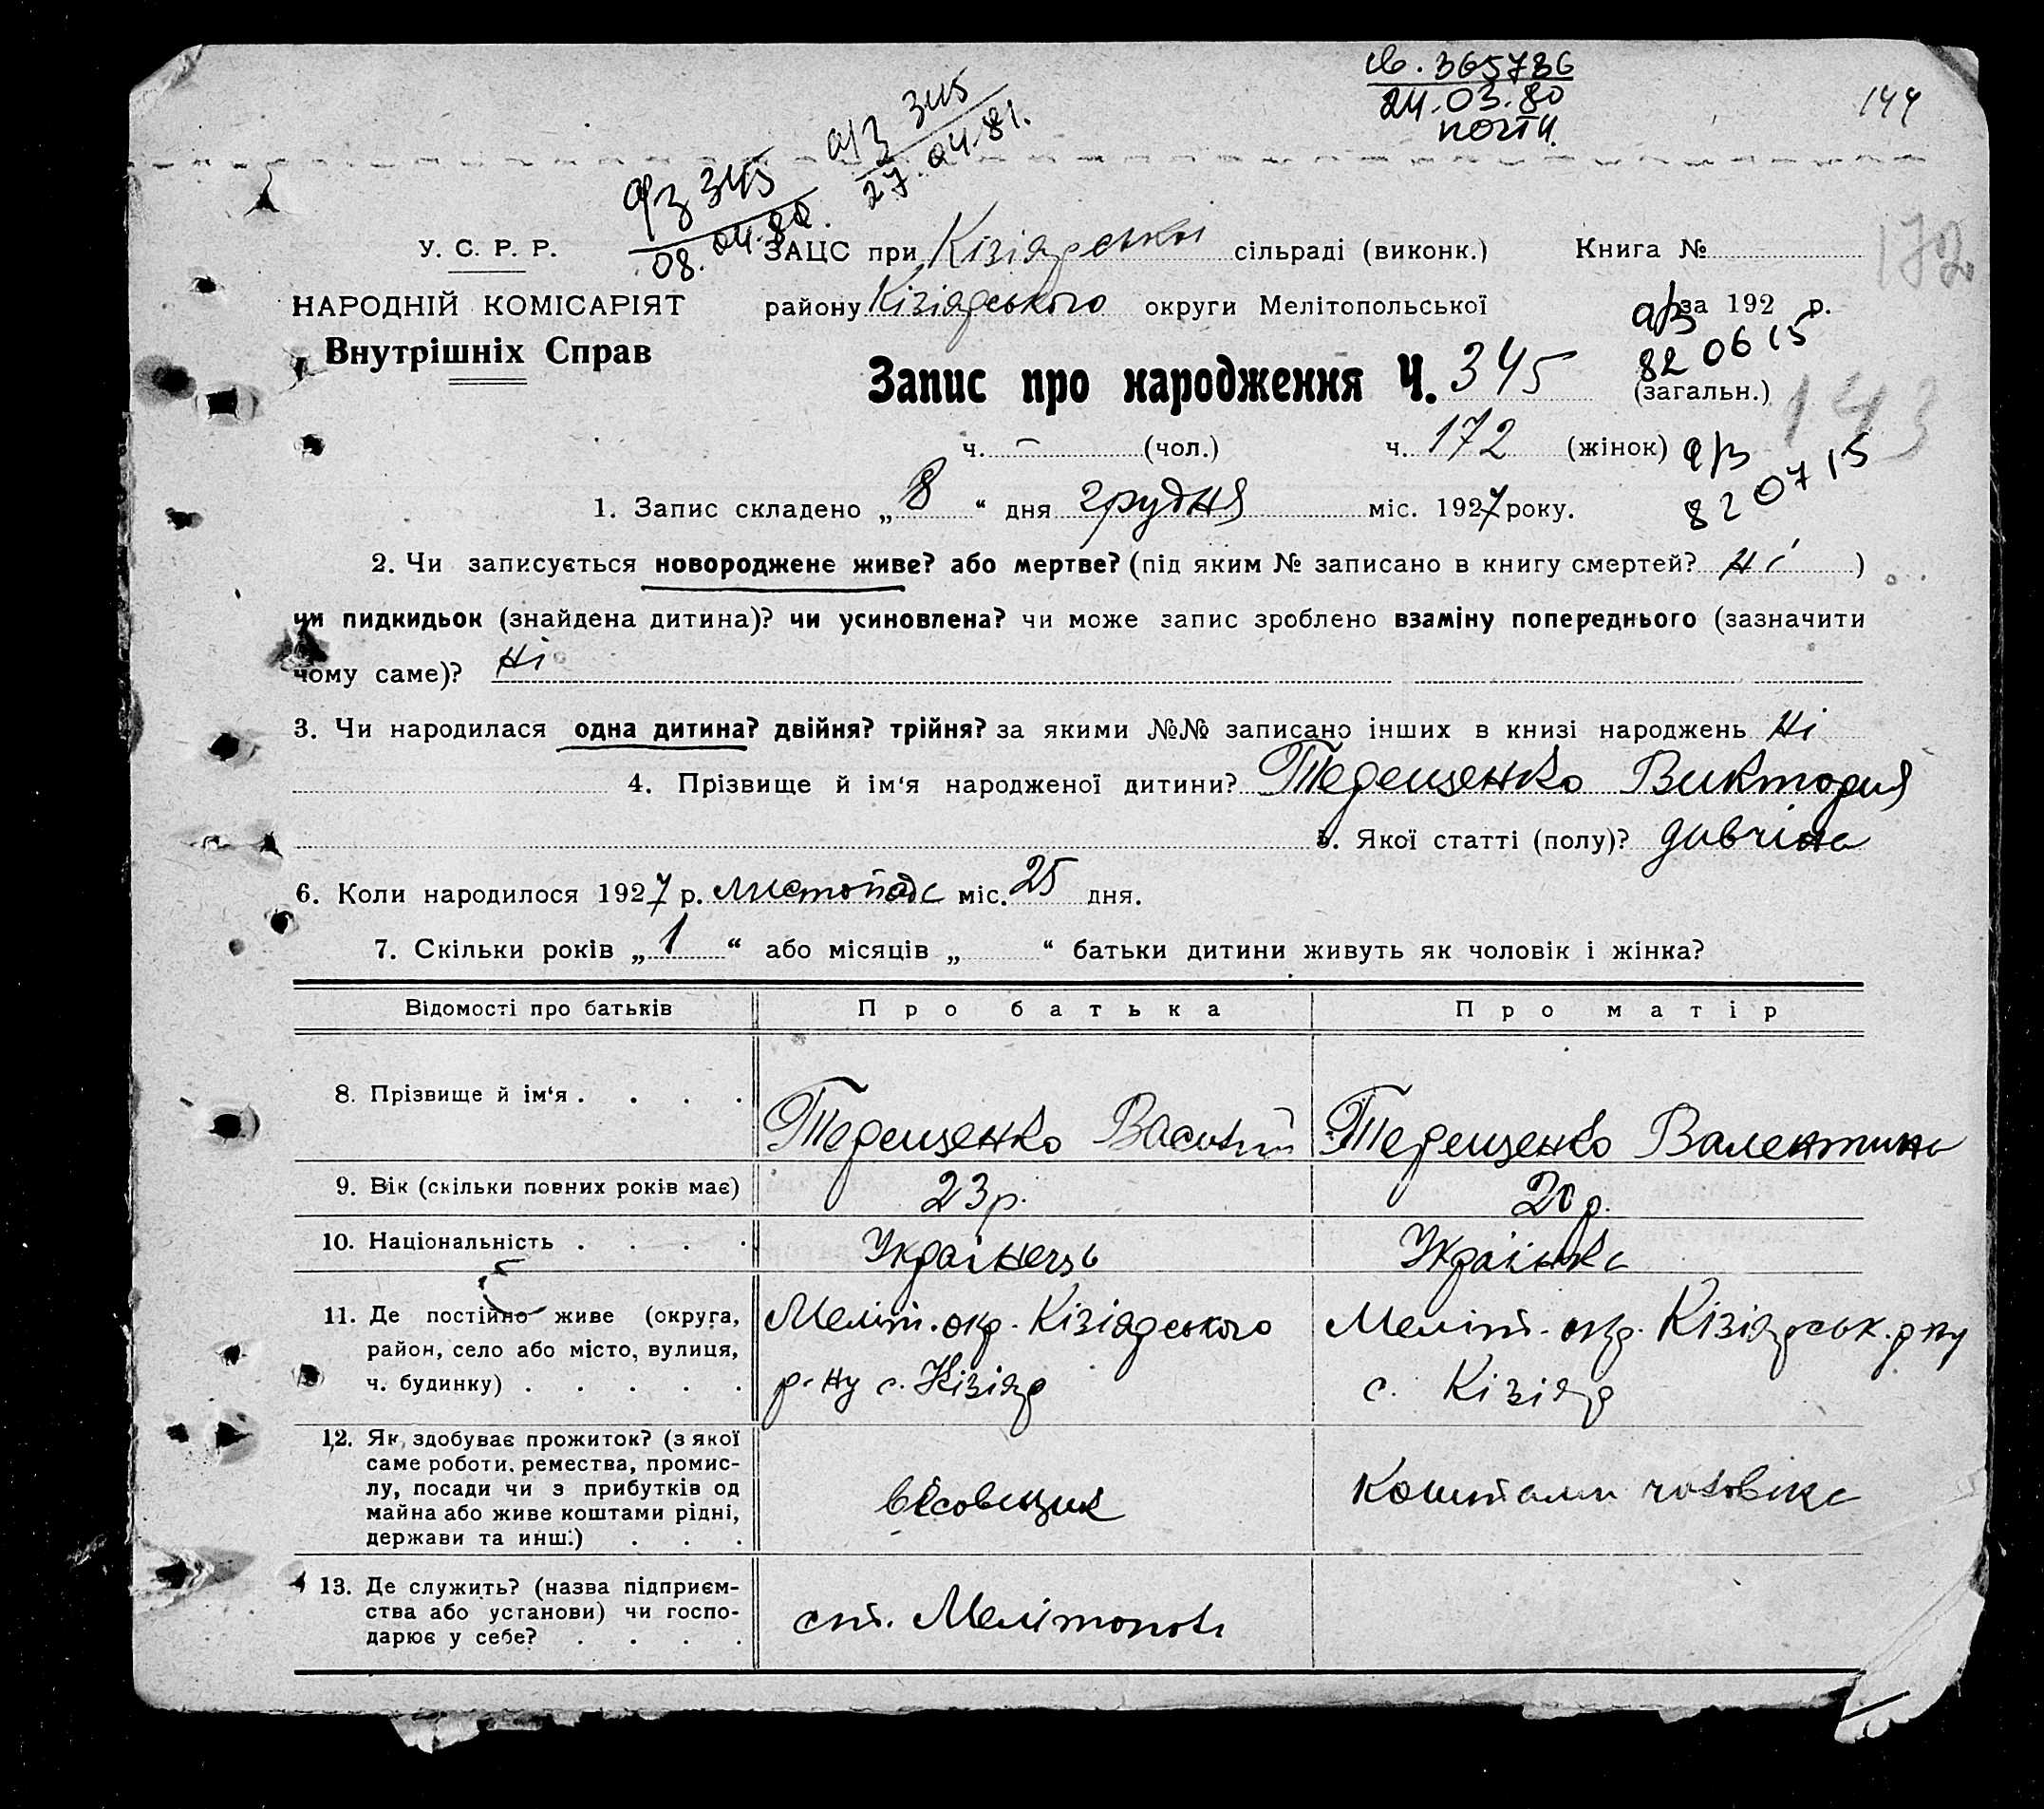 св. 365736
24.03.80
почти
144
а/з 345
27.04.81.
а/з 345
08.04.80.
У. С. Р. Р.
ЗАЦС при Кізіярській сільраді (виконк.) Книга №
172
НАРОДНІЙ КОМІСАРІЯТ
району Кізіярського округи Мелітопольської
за 192 р.
Внутрішніх Справ
а/з
820615
Запис про народження Ч. 345
(загальн.)
143
ч. – (чол.) ч. 172 (жінок)
а/з
820715
1. Запис складено „ 8 “ дня грудня міс. 1927 року.
2. Чи записується новороджене живе? або мертве? (під яким № записано в книгу смертей? Ні )
чи пидкидьок (знайдена дитина)? чи усиновлена? чи може запис зроблено взаміну попереднього (зазначити
чому саме)? Ні
3. Чи народилася одна дитина? двійня? трійня? за якими №№ записано інших в книзі народжень Ні
4. Прізвище й ім‘я народженої дитини? Терещенко Виктория
5. Якої статті (полу)? дивчина
6. Коли народилося 1927 р. листопада міс. 25 дня.
7. Скільки років „ 1 “ або місяців „ “ батьки дитини живуть як чоловік і жінка?
Відомості про батьків Про батька Про матір
8. Прізвище й ім‘я . . . . Терещенко Василий Терещенко Валентина
9. Вік (скільки повних років має) 23 р. 20 р.
10. Національність . . . . Українець Українка
11. Де постійно живе (округа, Меліт. окр. Кізіярського Меліт. окр. Кізіярськ. р-ну
район, село або місто, вулиця,
ч. будинку) . . . . . р-ну с. Кізіяр с. Кізіяр
12. Як здобуває прожиток? (з якої
саме роботи, ремества, промис-
лу, посади чи з прибутків од вісовщик коштами чоловіка
майна або живе коштами рідні,
держави та инш.) . . .
13. Де служить? (назва підприєм-
ства або установи) чи госпо- ст. Мелітополь
дарює у себе? . . . .